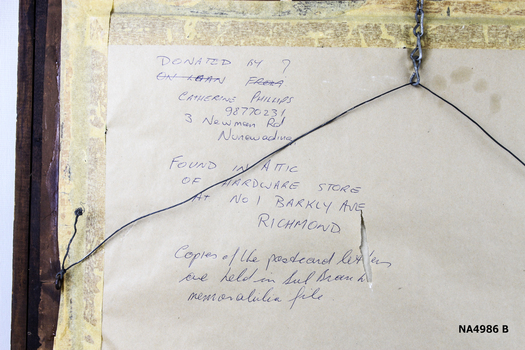 DONATED BY ?
ON LOAN FROM
CATHERINE PHILLIPS
98770231
3 Newman Rd
Nunawading
FOUND IN ATTIC
OF HARDWARE STORE
AT No 1 BARKLY AVE
RICHMOND
Copies of the postcard letters
are held in Sub Branch
memorabilia file
NA4986 B